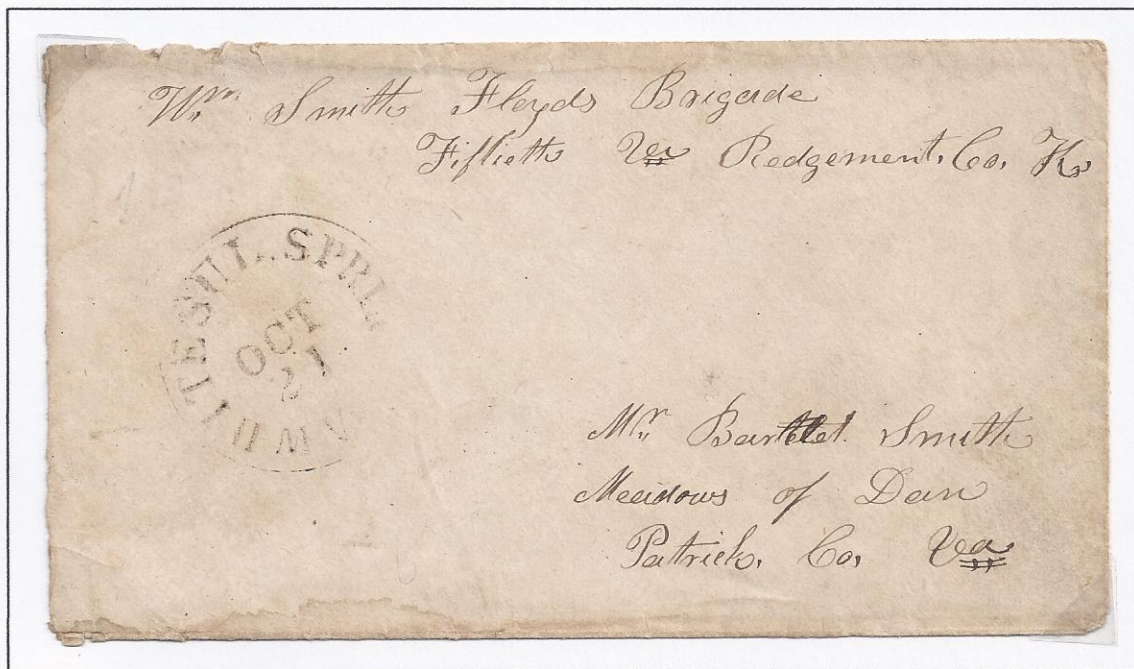 Wm Smith Floyds Brigade
Fiftieth Va Redgement, Co, K,
WHITE SUL. SPRI
VA
OCT
21
Mr. Bartlet Smith
Meadows of Dan
Patrick, Co, Va